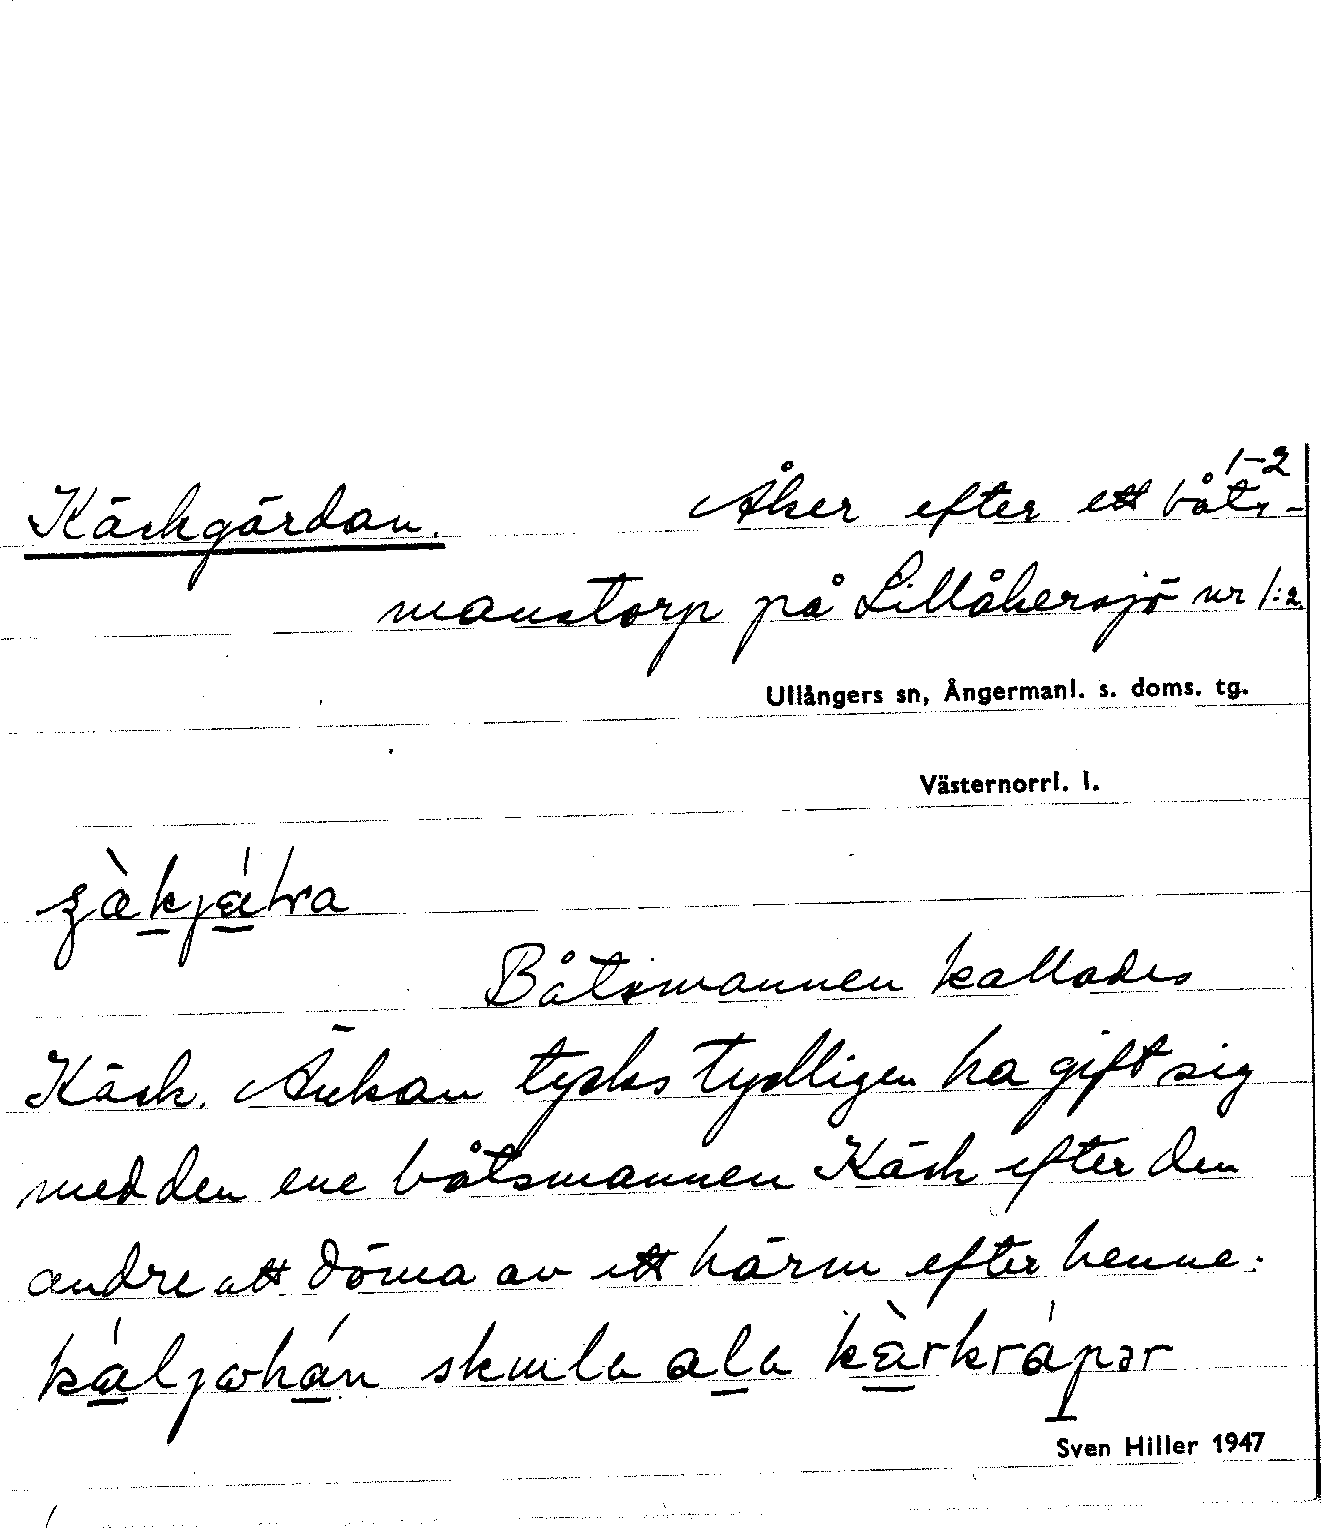 1-2
Käckgärdan. Åker efter ett båts-
manstorp på Lillåkersjö nr 1:2
Ullångers sn, Ångermanl. s. doms. tg.
Västernorrl. l.
Båtsmannen kallades
Käck. Änkan tycks tydligen ha gift sig
med den ene båtsmannen Käck efter den
andre att döma av ett härm efter henne:
skula ala
Sven Hiller 1947